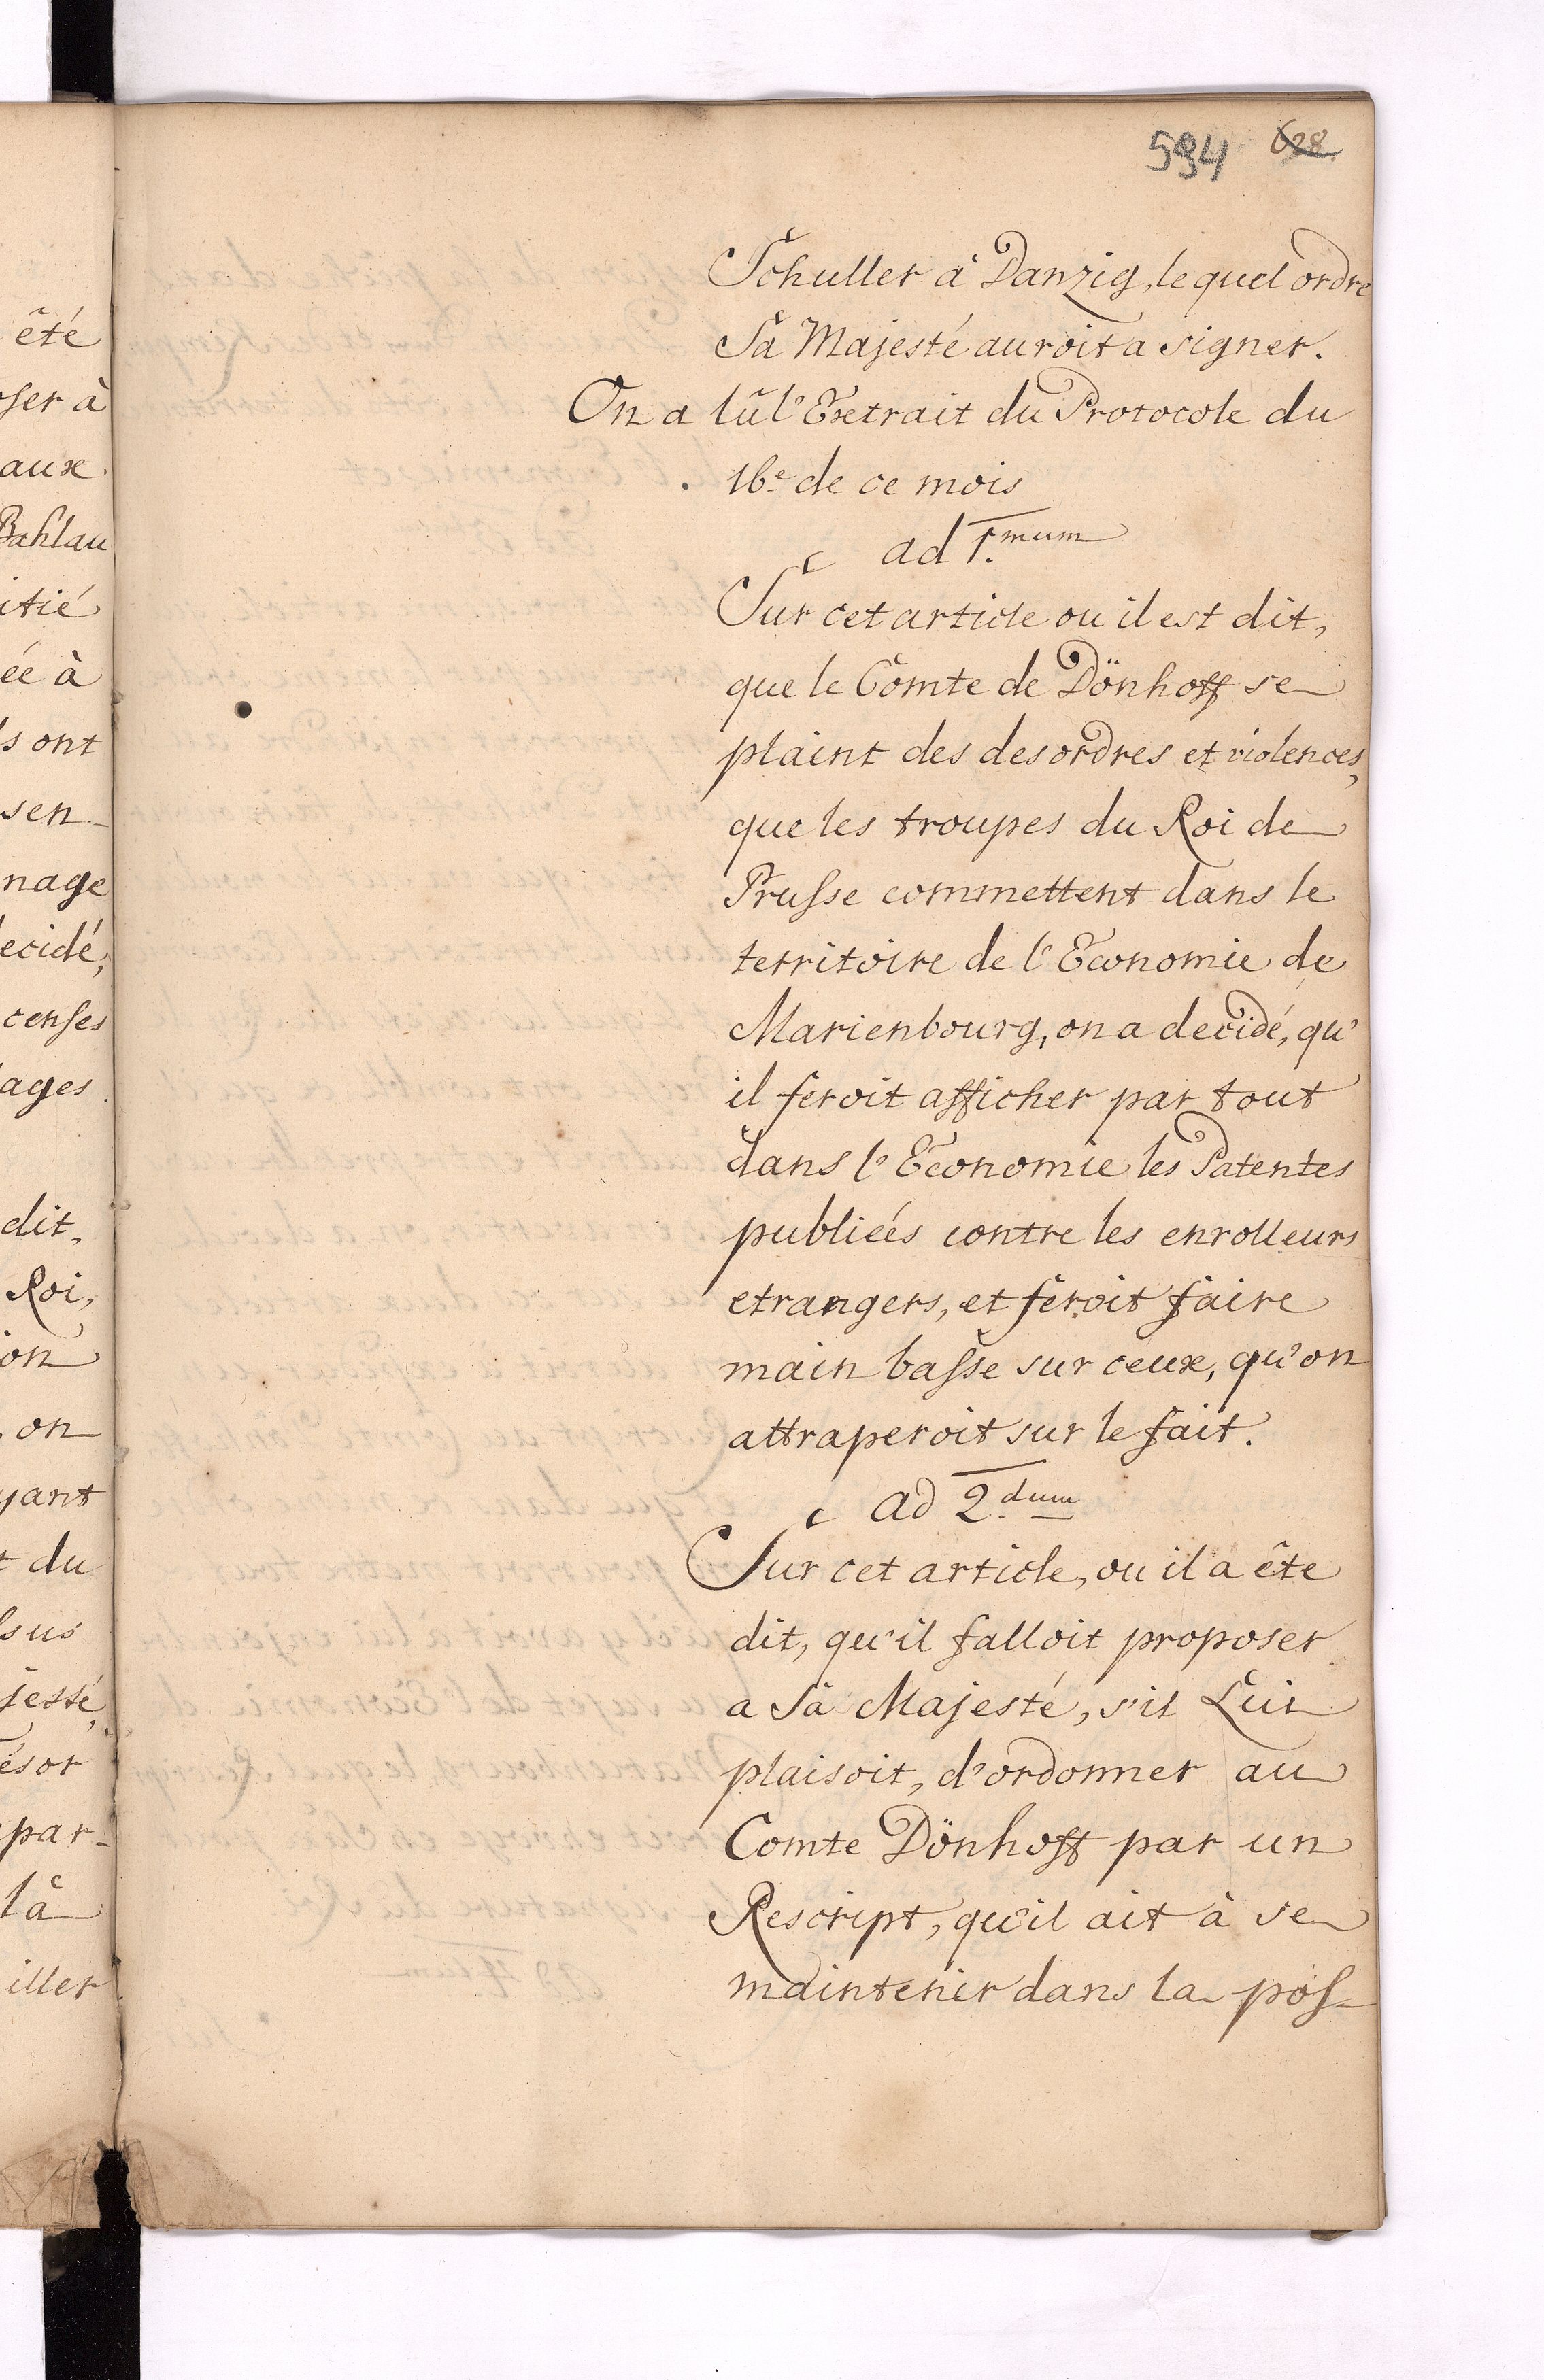 594 628
Schuller à Danzig, le quel ordre
Sa Majesté auroit a signer.
On a lû l'Extrait du Protocole du
16e de ce mois
ad 1.mum
Sur cet article ou il est dit,
que le Comte de Dönhoff se
plaint des desordres et violences,
que les troupes du Roi de
Prusse commettent dans le
territoire de l'Economie de
Marienbourg, on a decidé, qu'
il feroit afficher par tout
dans l'Economie les Patentes
publiées contre les enrolleurs
etrangers, et feroit faire
main basse sur ceux, qu'on
attraperoit sur le fait.
ad 2.dum
Sur cet article, ou il a ête
dit, qu'il falloit proposer
a Sa Majesté, s'il Lui
plaisoit, d'ordonner au
Comte Dönhoff par un
Rescript, qu'il ait à se
maintenir dans la pos-
êté
ser à
aux
Bahlau
itié
ée à
s ont
sen-
nage
ecidé,
censes
ages.
dit,
Roi,
on
on
yant
t du
sus
jesté,
ésor
par-
là
iller